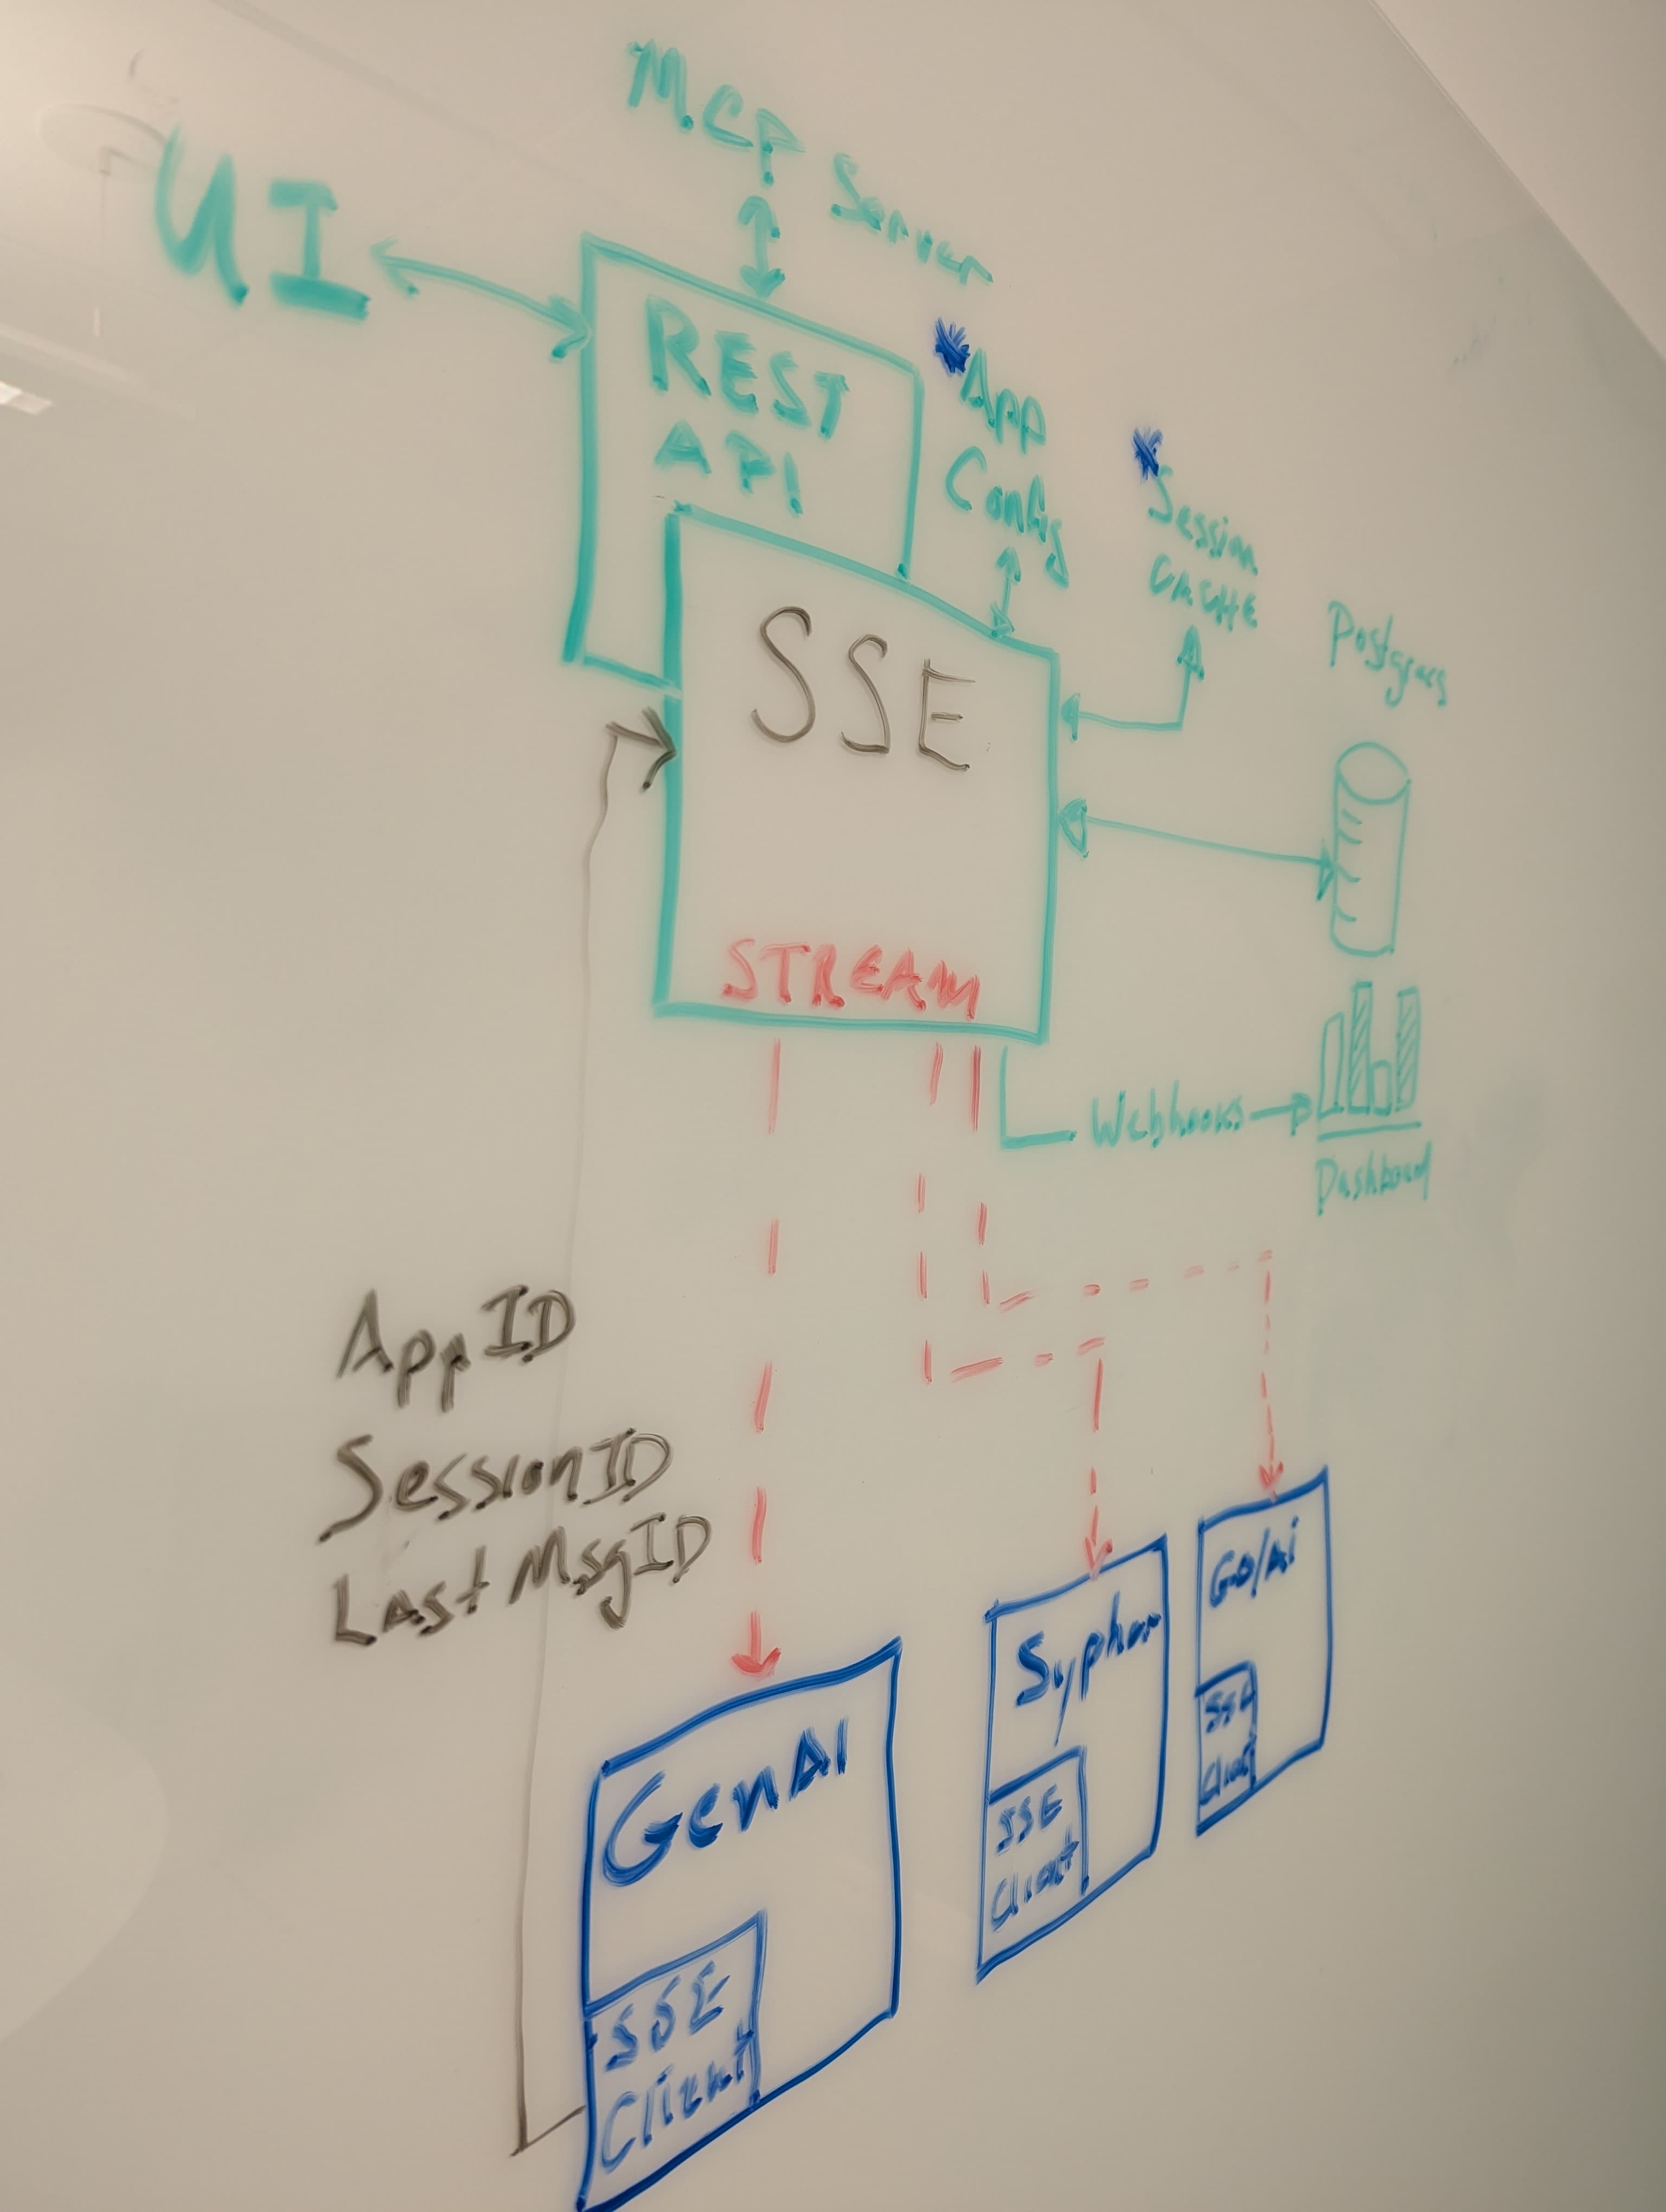 MCP Server
UI
REST
API
* App
Config
* Session
CACHE
Postgres
SSE
STREAM
Webhooks
Dashboard
AppID
SessionID
Last MsgID
GenAI
SSE
Client
Syphor
SSE
Client
GO/Ai
SSE
Client